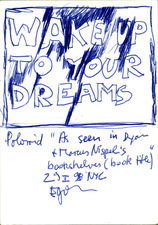 WAKE UP
TO YOUR
DREAMS
Polaroid "As seen in Ryan
+ Marcus Nispel's
bookshelves (book title)"
29 I 98 NYC